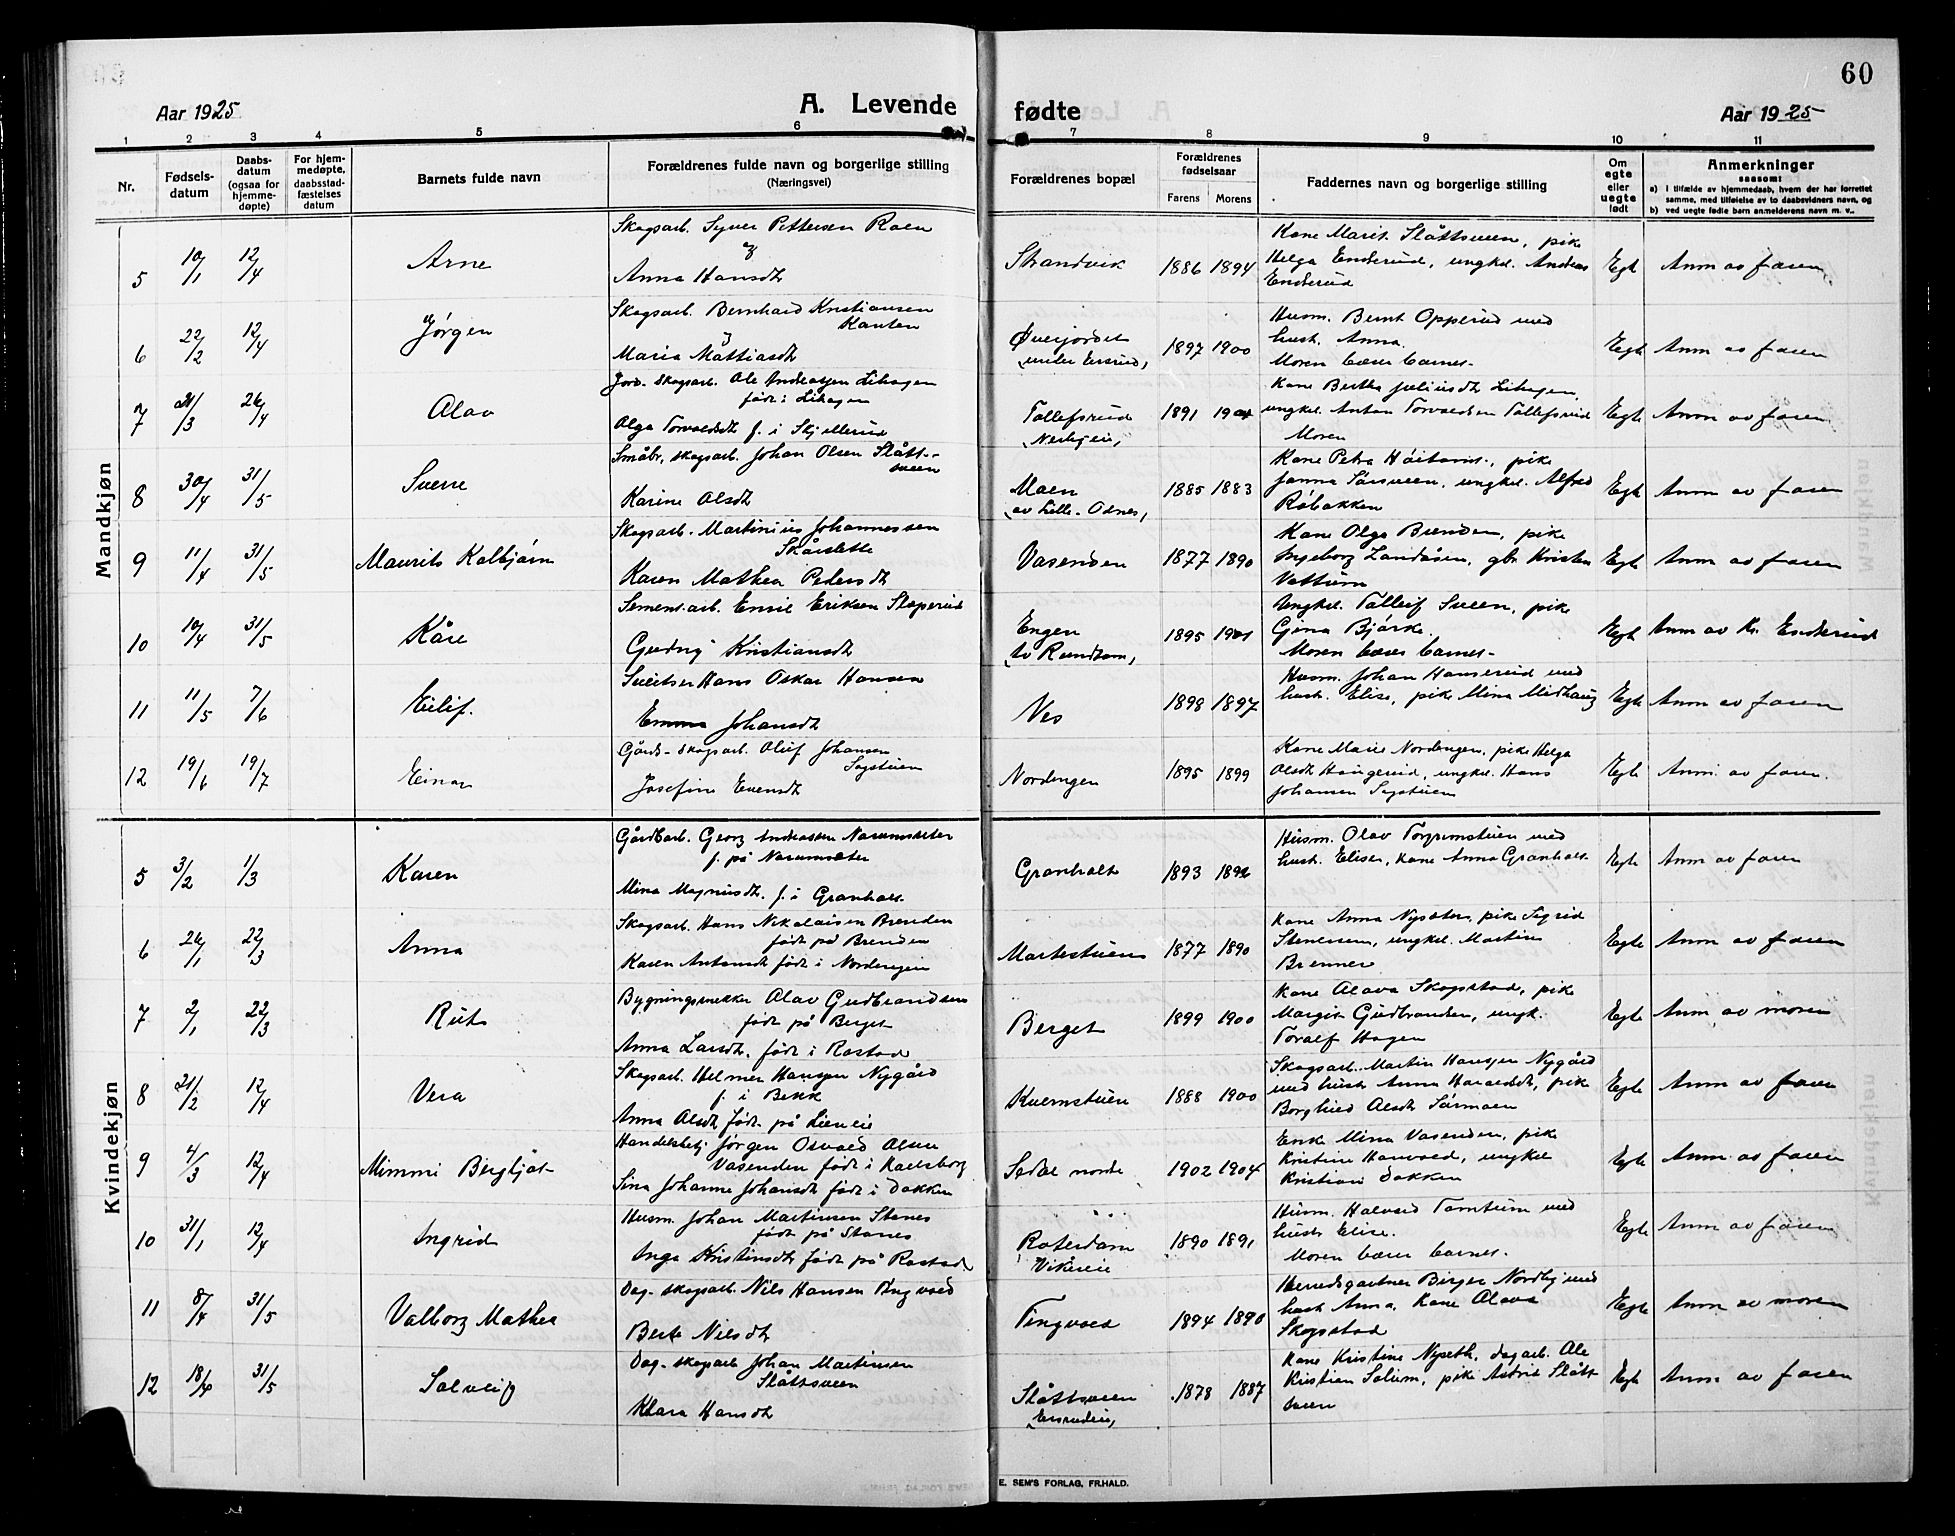 60
Aar 1925 A. Levende fødte Aar 1925
1 2 3 4 5 6 7 8 9 10 11
Nr.
Fødsels-
datum
Daabs-
datum
(ogsaa for
hjemme-
døpte)
For hjem-
medøpte,
daabsstad-
fæstelses
datum
Barnets fulde navn
Forældrenes fulde navn og borgerlige stilling
(Næringsvei)
Forældrenes bopæl
Forældrenes
fødselsaar
Farens Morens
Faddernes navn og borgerlige stilling
Om
egte
eller
uegte
født
Anmerkninger
saasom:
a) i tilfælde av hjemmedaab, hvem der har forrettet
samme, med tilføielse av to daabsvidners navn, og
b) ved uegte fødte barn anmelderens navn m. v..
Mandkjøn
Skogsarb. Syver Pettersen Roen
og
Anna Hansdt
5 10/1 12/4 Arne Strandvik 1886 1894
Kone Marit Slåttsveen, pike
Helga Enderud, ungkel. Andreas
Enderud
Egte Anm av faren
Skogsarb. Bernhard Kristiansen
Kanten
Maria Mattiasdt
6 22/2 12/4 Jørgen Øverjordet
under Ensrud, 1897 1900
Husm. Bernt Opperud med
hust. Anna.
Moren bærer barnet.
Egte Anm av faren
Jord- skogsarb. Ole Andreassen Lihagen
født i Lihagen
Olga Torvaldsdt f. i Skjellerud
7 21/3 26/4 Olav Tollefsrud
1891 1901
Kone Bertha Juliusdt Lihagen,
ungkel. Anton Torvaldsen Tollefsrud
Moren
Egte Anm av faren
Småbr, skogsarb. Johan Olsen Slått-
sveen
Karine Olsdt
8 30/4 31/5 Sverre Moen
av Lille- Odnes, 1885 1883
Kone Petra Høitomt., pike
Janna Sørsveen, ungkel. Alfred
Røbakken
Egte Anm av faren
Skogsarb. Martinius Johannessen
Skårslette
Karen Mathea Pedersdt
9 11/4 31/5 Maurits Kolbjørn Vasenden 1877 1890
Kone Olga Brenden, pike
Ingeborg Landåsen, gbr Kristen
Vattum
Egte Anm av faren
Sement.arb. Emil Eriksen Skoperud
Gudny Kristiansdt
10 10/4 31/5 Kåre Engen
1895 1901
Ungkel. Tolleif Sveen, pike
Gina Bjørke.
Moren bærer barnet-
Egte Anm av Kr. Enderud
Sveitser Hans Oskar Hansen
Emma Johansdt
11 11/5 7/6 Eilif. Ves 1898 1897
Husm. Johan Hanserud med
hust. Elise, pike Mina Midthaug
Egte Anm av faren
Gårds- skogsarb. Oluf Johansen
Sagstuen
Josefine Evensdt
12 19/6 19/7 Einar Nordengen 1895 1899
Kone Marie Nordengen, pike Helga
Olsdt Haugerud, ungkel. Hans
Johansen Sagstuen
Egte Anm. av faren.
Kvindekjøn
Gårdbarb. Georg Andreassen Narumseter
f. på Narumsæter
Mina Magnusdt. f. i Granholt.
5 3/2 1/3 Karen Granholt 1893 1892
Husm. Olav Torgrimstuen med
hust. Elise, kone Anna Granholt.
Egte Anm av faren
Skogsarb. Hans Nikolaisen Brenden
født på Brenden
Karen Antonsdt født i Nordengen
6 26/1 22/3 Anna Martestuen 1877 1890
Kone Anna Nyseter, pike Sigrid
Stenersen, ungkel. Martin
Brenner
Egte Anm av faren
Bygningssnekker Olav Gudbrandsen
født på Berget
Anna Larsdt. født i Rostad
7 2/1 22/3 Rut Berget 1899 1900
Kone Olava Skogstad, pike
Margit Gudbrandsen, ungk.
Toralf Hagen
Egte Anm av moren
Skogsarb. Helmer Hansen Nygård
f. i Bekk
Anna Olsdt født på Lieneie
8 21/2 12/4 Vera Kvernstuen 1888 1900
Skogsarb. Martin Hansen Nygård
med hust Anna Haraldsdt, pike
Borghild Olsdt Sørmoen
Egte Anm av faren
Handelsbetj. Jørgen Osvald Olsen
Vasenden født i Karlsborg
Sina Johanne Johansdt født i Dokken
9 4/3 12/4 Mimmi Bergljot Sedal nordre 1902 1904
Enk. Mina Vasenden, pike
Kristine Hanvold, ungkel
Kristian Dokken
Egte Anm av faren
Husm. Johan Martinsen Stenes
født på Stenes
Inga Kristinsdt født på Rostad
10 31/1 12/4 Ingrid Roterdam
Vikeseie 1890 1891
Husm. Halvord Tomtum med
hust Elise.
Moren bærer barnet.
Egte Anm av faren
Dag- skogsarb. Nils Hansen Tingvold
Berte Nilsdt
11 8/4 31/5 Valborg Mathea Tingvold 1894 1890
Herredsgartner Birger Nordby med
hust Anna, Kone Olava
Skogstad
Egte Anm av moren
Dag- skogsarb Johan Martinsen
Slåttsveen
Klara Hansdt
12 18/4 31/5 Solveig Slåttsveen
1878 1887
Kone Kristine Nyseth, dagarb. Ole
Kristian Solum, pike Astrid Slått
sveen
Egte Anm. av faren
E. SEM'S FORLAG, FR.HALD.